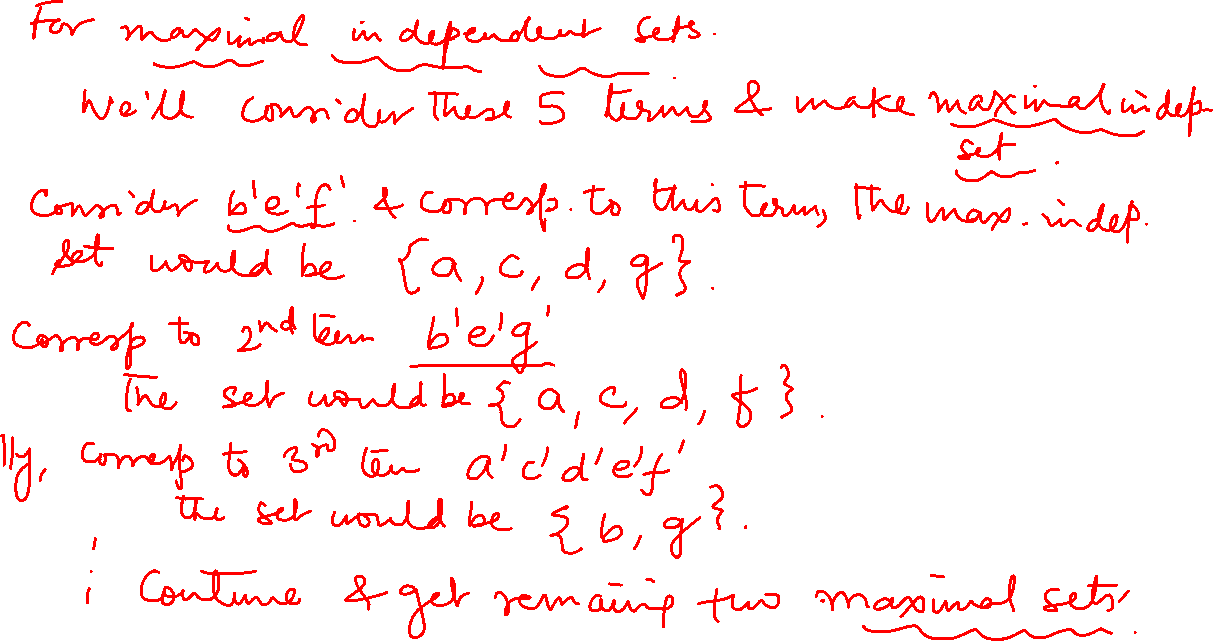 For maximal independent sets.
We'll consider these 5 terms & make maximal indep
set.
Consider b'e'f' & corresp. to this term, the max. indep.
set would be {a, c, d, g}.
Corresp to 2nd term b'e'g'
The set would be {a, c, d, f}.
lly, corresp to 3rd term a'c'd'e'f'
the set would be {b, g}.
Continue & get remaining two maximal sets.